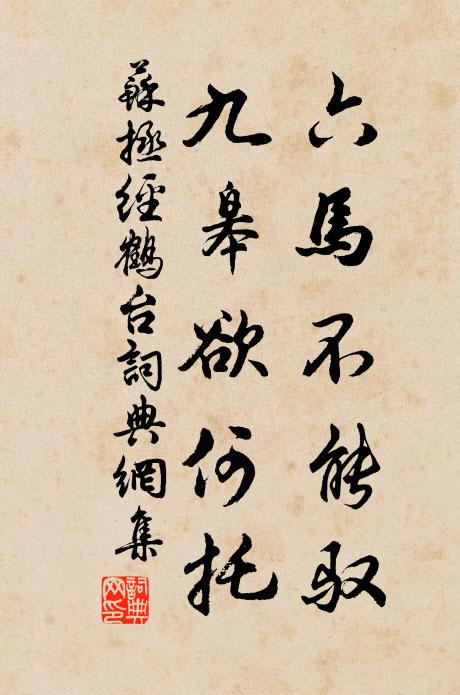 六馬不能馭
九皋欲何托
蘇拯經鶴台詞典網集
詞典網印